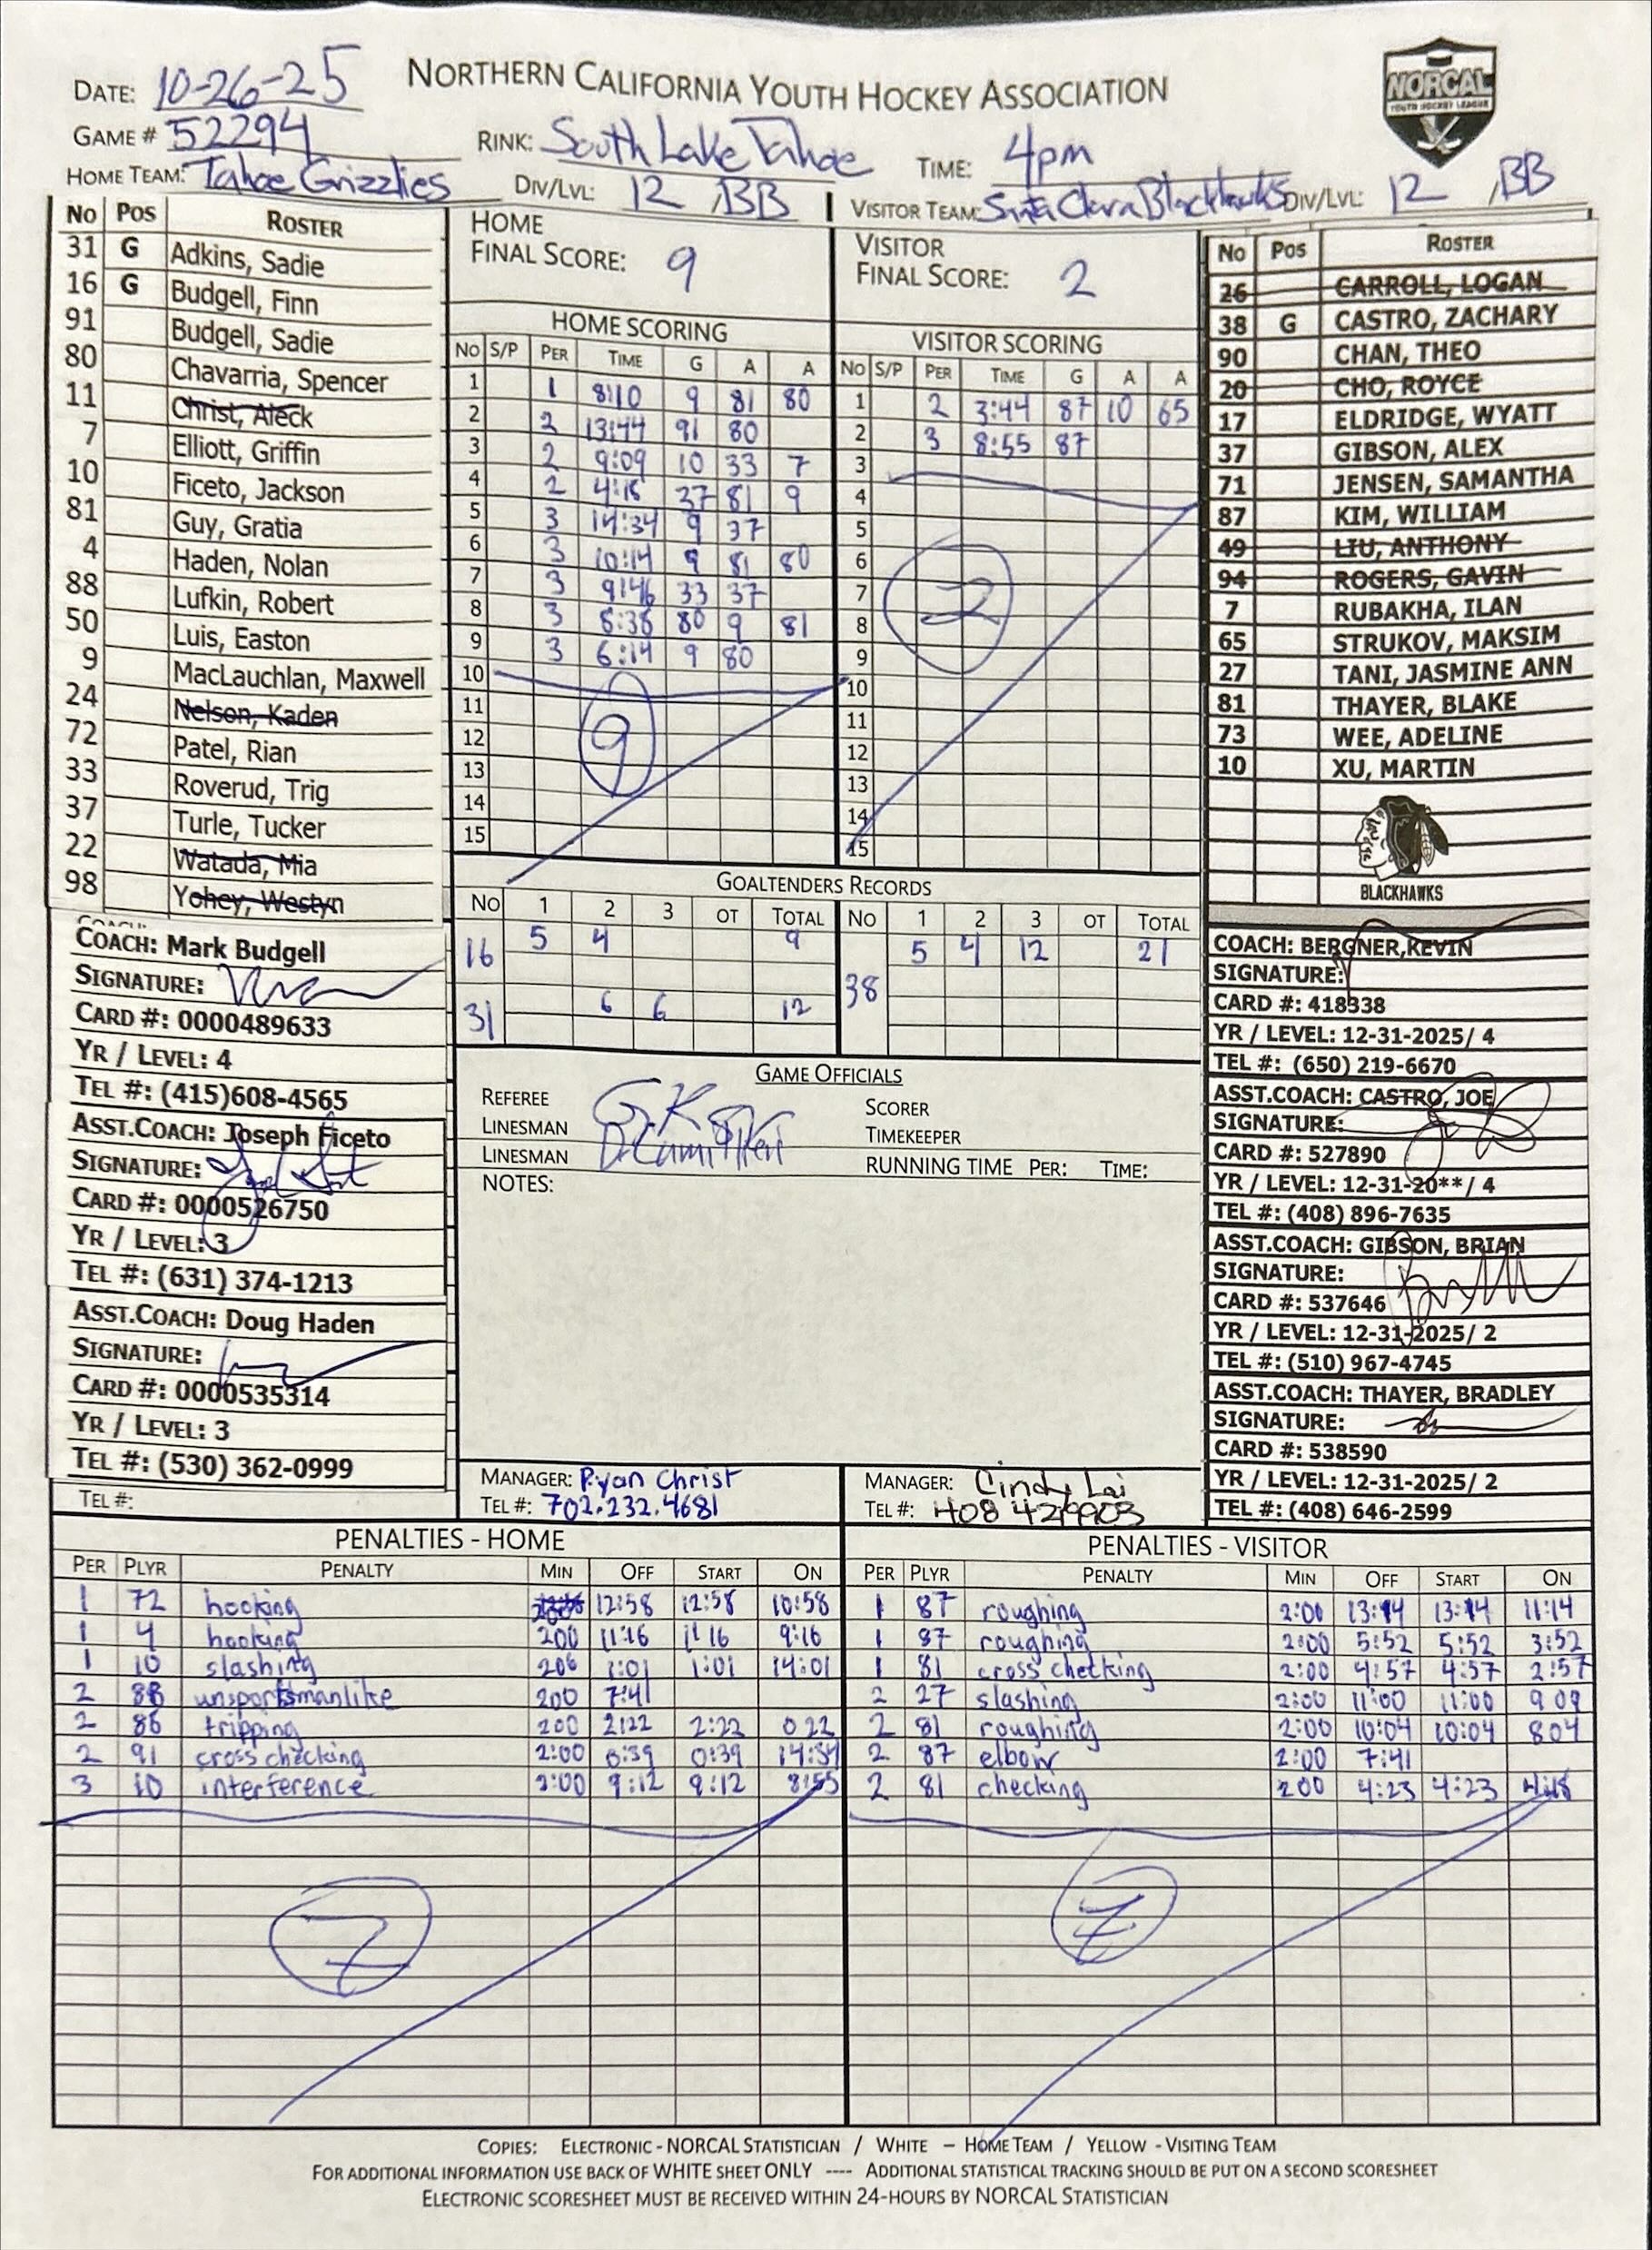 NORTHERN CALIFORNIA YOUTH HOCKEY ASSOCIATION
NORCAL
YOUTH HOCKEY LEAGUE
DATE: 10-26-25
GAME # 52294
RINK: South Lake Tahoe
TIME: 4pm
HOME TEAM: Tahoe Grizzlies
DIV/LVL: 12, BB
VISITOR TEAM: Santa Clara Blackhawks
DIV/LVL: 12, BB
No Pos ROSTER
31 G Adkins, Sadie
16 G Budgell, Finn
91 Budgell, Sadie
80 Chavarria, Spencer
11 Christ, Aleck
7 Elliott, Griffin
10 Ficeto, Jackson
81 Guy, Gratia
4 Haden, Nolan
88 Lufkin, Robert
50 Luis, Easton
9 MacLauchlan, Maxwell
24 Nelson, Kaden
72 Patel, Rian
33 Roverud, Trig
37 Turle, Tucker
22 Watada, Mia
98 Yohey, Westyn
COACH: Mark Budgell
SIGNATURE:
CARD #: 0000489633
YR / LEVEL: 4
TEL #: (415)608-4565
ASST.COACH: Joseph Ficeto
SIGNATURE:
CARD #: 0000526750
YR / LEVEL: 3
TEL #: (631) 374-1213
ASST.COACH: Doug Haden
SIGNATURE:
CARD #: 0000535314
YR / LEVEL: 3
TEL #: (530) 362-0999
TEL #:
HOME
FINAL SCORE: 9
HOME SCORING
No S/P PER TIME G A A
1 1 8:10 9 81 80
2 2 13:44 91 80
3 2 9:09 10 33 7
4 2 4:18 37 81 9
5 3 14:34 9 37
6 3 10:14 9 81 80
7 3 9:46 33 37
8 3 8:38 80 9 81
9 3 6:14 9 80
10
11
12
13
14
15
9
VISITOR
FINAL SCORE: 2
VISITOR SCORING
No S/P PER TIME G A A
1 2 3:44 87 10 65
2 3 8:55 87
3
4
5
6
7
8
9
10
11
12
13
14
15
2
GOALTENDERS RECORDS
No 1 2 3 OT TOTAL No 1 2 3 OT TOTAL
16 5 4 9
31 6 6 12
38 5 4 12 21
GAME OFFICIALS
REFEREE
LINESMAN
LINESMAN
SCORER
TIMEKEEPER
RUNNING TIME PER: TIME:
NOTES:
MANAGER: Ryan Christ
TEL #: 702.232.4681
MANAGER: Cindy Lai
TEL #: 408 4219903
No Pos ROSTER
26 CARROLL, LOGAN
38 G CASTRO, ZACHARY
90 CHAN, THEO
20 CHO, ROYCE
17 ELDRIDGE, WYATT
37 GIBSON, ALEX
71 JENSEN, SAMANTHA
87 KIM, WILLIAM
49 LIU, ANTHONY
94 ROGERS, GAVIN
7 RUBAKHA, ILAN
65 STRUKOV, MAKSIM
27 TANI, JASMINE ANN
81 THAYER, BLAKE
73 WEE, ADELINE
10 XU, MARTIN
BLACKHAWKS
COACH: BERGNER,KEVIN
SIGNATURE:
CARD #: 418338
YR / LEVEL: 12-31-2025/ 4
TEL #: (650) 219-6670
ASST.COACH: CASTRO, JOE
SIGNATURE:
CARD #: 527890
YR / LEVEL: 12-31-20**/ 4
TEL #: (408) 896-7635
ASST.COACH: GIBSON, BRIAN
SIGNATURE:
CARD #: 537646
YR / LEVEL: 12-31-2025/ 2
TEL #: (510) 967-4745
ASST.COACH: THAYER, BRADLEY
SIGNATURE:
CARD #: 538590
YR / LEVEL: 12-31-2025/ 2
TEL #: (408) 646-2599
PENALTIES - HOME
PER PLYR PENALTY MIN OFF START ON
1 72 hooking 12:58 12:58 10:58
1 4 hooking 200 11:16 11 16 9:16
1 10 slashing 200 1:01 1:01 14:01
2 88 unsportsmanlike 200 7:41
2 86 tripping 200 2:22 2:22 0 22
2 91 cross checking 2:00 0:39 0:39 14:34
3 10 interference 2:00 9:12 9:12 8:55
7
PENALTIES - VISITOR
PER PLYR PENALTY MIN OFF START ON
1 87 roughing 2:00 13:14 13:14 11:14
1 87 roughing 2:00 5:52 5:52 3:52
1 81 cross checking 2:00 4:57 4:57 2:57
2 27 slashing 2:00 11:00 11:00 9 09
2 81 roughing 2:00 10:04 10:04 8 04
2 87 elbow 2:00 7:41
2 81 checking 2 00 4:23 4:23 4:18
7
COPIES: ELECTRONIC - NORCAL STATISTICIAN / WHITE – HOME TEAM / YELLOW - VISITING TEAM
FOR ADDITIONAL INFORMATION USE BACK OF WHITE SHEET ONLY ---- ADDITIONAL STATISTICAL TRACKING SHOULD BE PUT ON A SECOND SCORESHEET
ELECTRONIC SCORESHEET MUST BE RECEIVED WITHIN 24-HOURS BY NORCAL STATISTICIAN